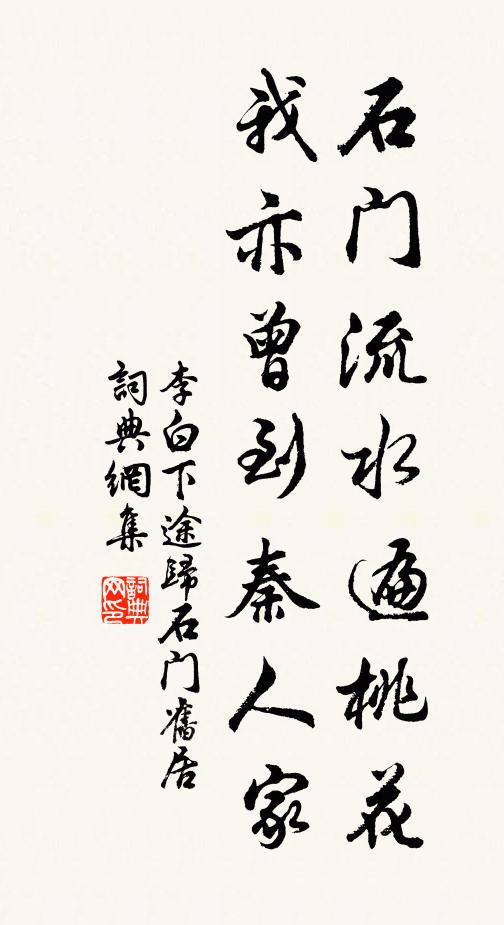 石门流水遍桃花
我亦曾到秦人家
李白下途歸石门舊居
詞典網集
詞典网印